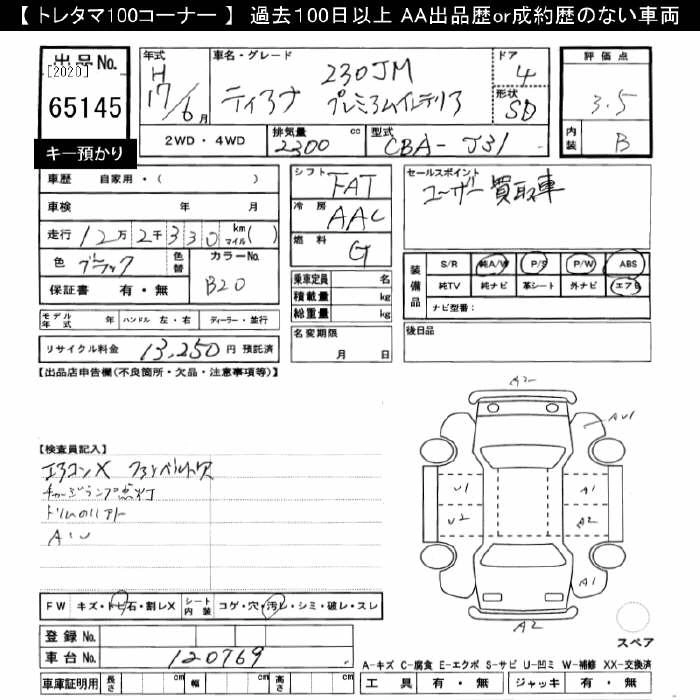 【 トレタマ100コーナー 】 過去100日以上 AA出品歴or成約歴のない車両
出品No.
[2020]
65145
キー預かり
年式 H 17/6月
車名・グレード 230JM
ティアナ プレミアムインテリア
ドア 4
形状 SD
評価点 3.5
内装 B
2WD・4WD 排気量 2300 cc 型式 CBA-J31
車歴 自家用・( )
車検 年 月
走行 12万2千330 km マイル( )
色 ブラック 色替 カラーNo. B20
保証書 有・無
シフト FAT
冷房 AAC
燃料 G
乗車定員 名
積載量 kg
総重量 kg
名変期限 月 日
セールスポイント
ユーザー買取車
装備品 S/R 純A/W P/S P/W ABS
純TV 純ナビ 革シート 外ナビ エアB
ナビ型番:
後日品
モデル年式 年 ハンドル 左・右 ディーラー・並行
リサイクル料金 13,250円 預託済
【出品店申告欄(不良箇所・欠品・注意事項等)】
【検査員記入】
エアコンX ファンベルト欠
チャージランプ点灯
A・U
A2
AU1
U1 A1
U2 A2
A1
A2
スペア
FW キズ・トビ石・割レX シート内装 コゲ・穴・汚レ・シミ・破レ・スレ
登録No.
車台No. 120769
車庫証明用 長さ cm 幅 cm 高さ cm
A-キズ C-腐食 E-エクボ S-サビ U-凹ミ W-補修 XX-交換済
工具 有・無 ジャッキ 有・無